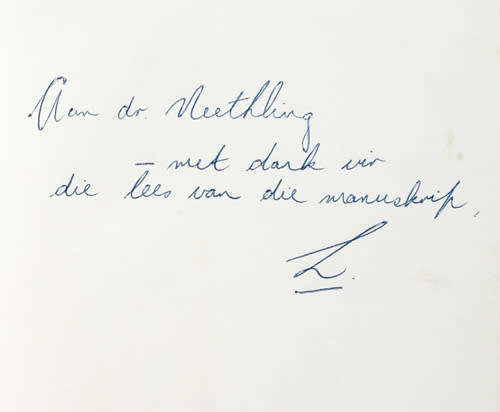 Aan dr. Neethling
– met dank vir
die lees van die manuskrip,
L.